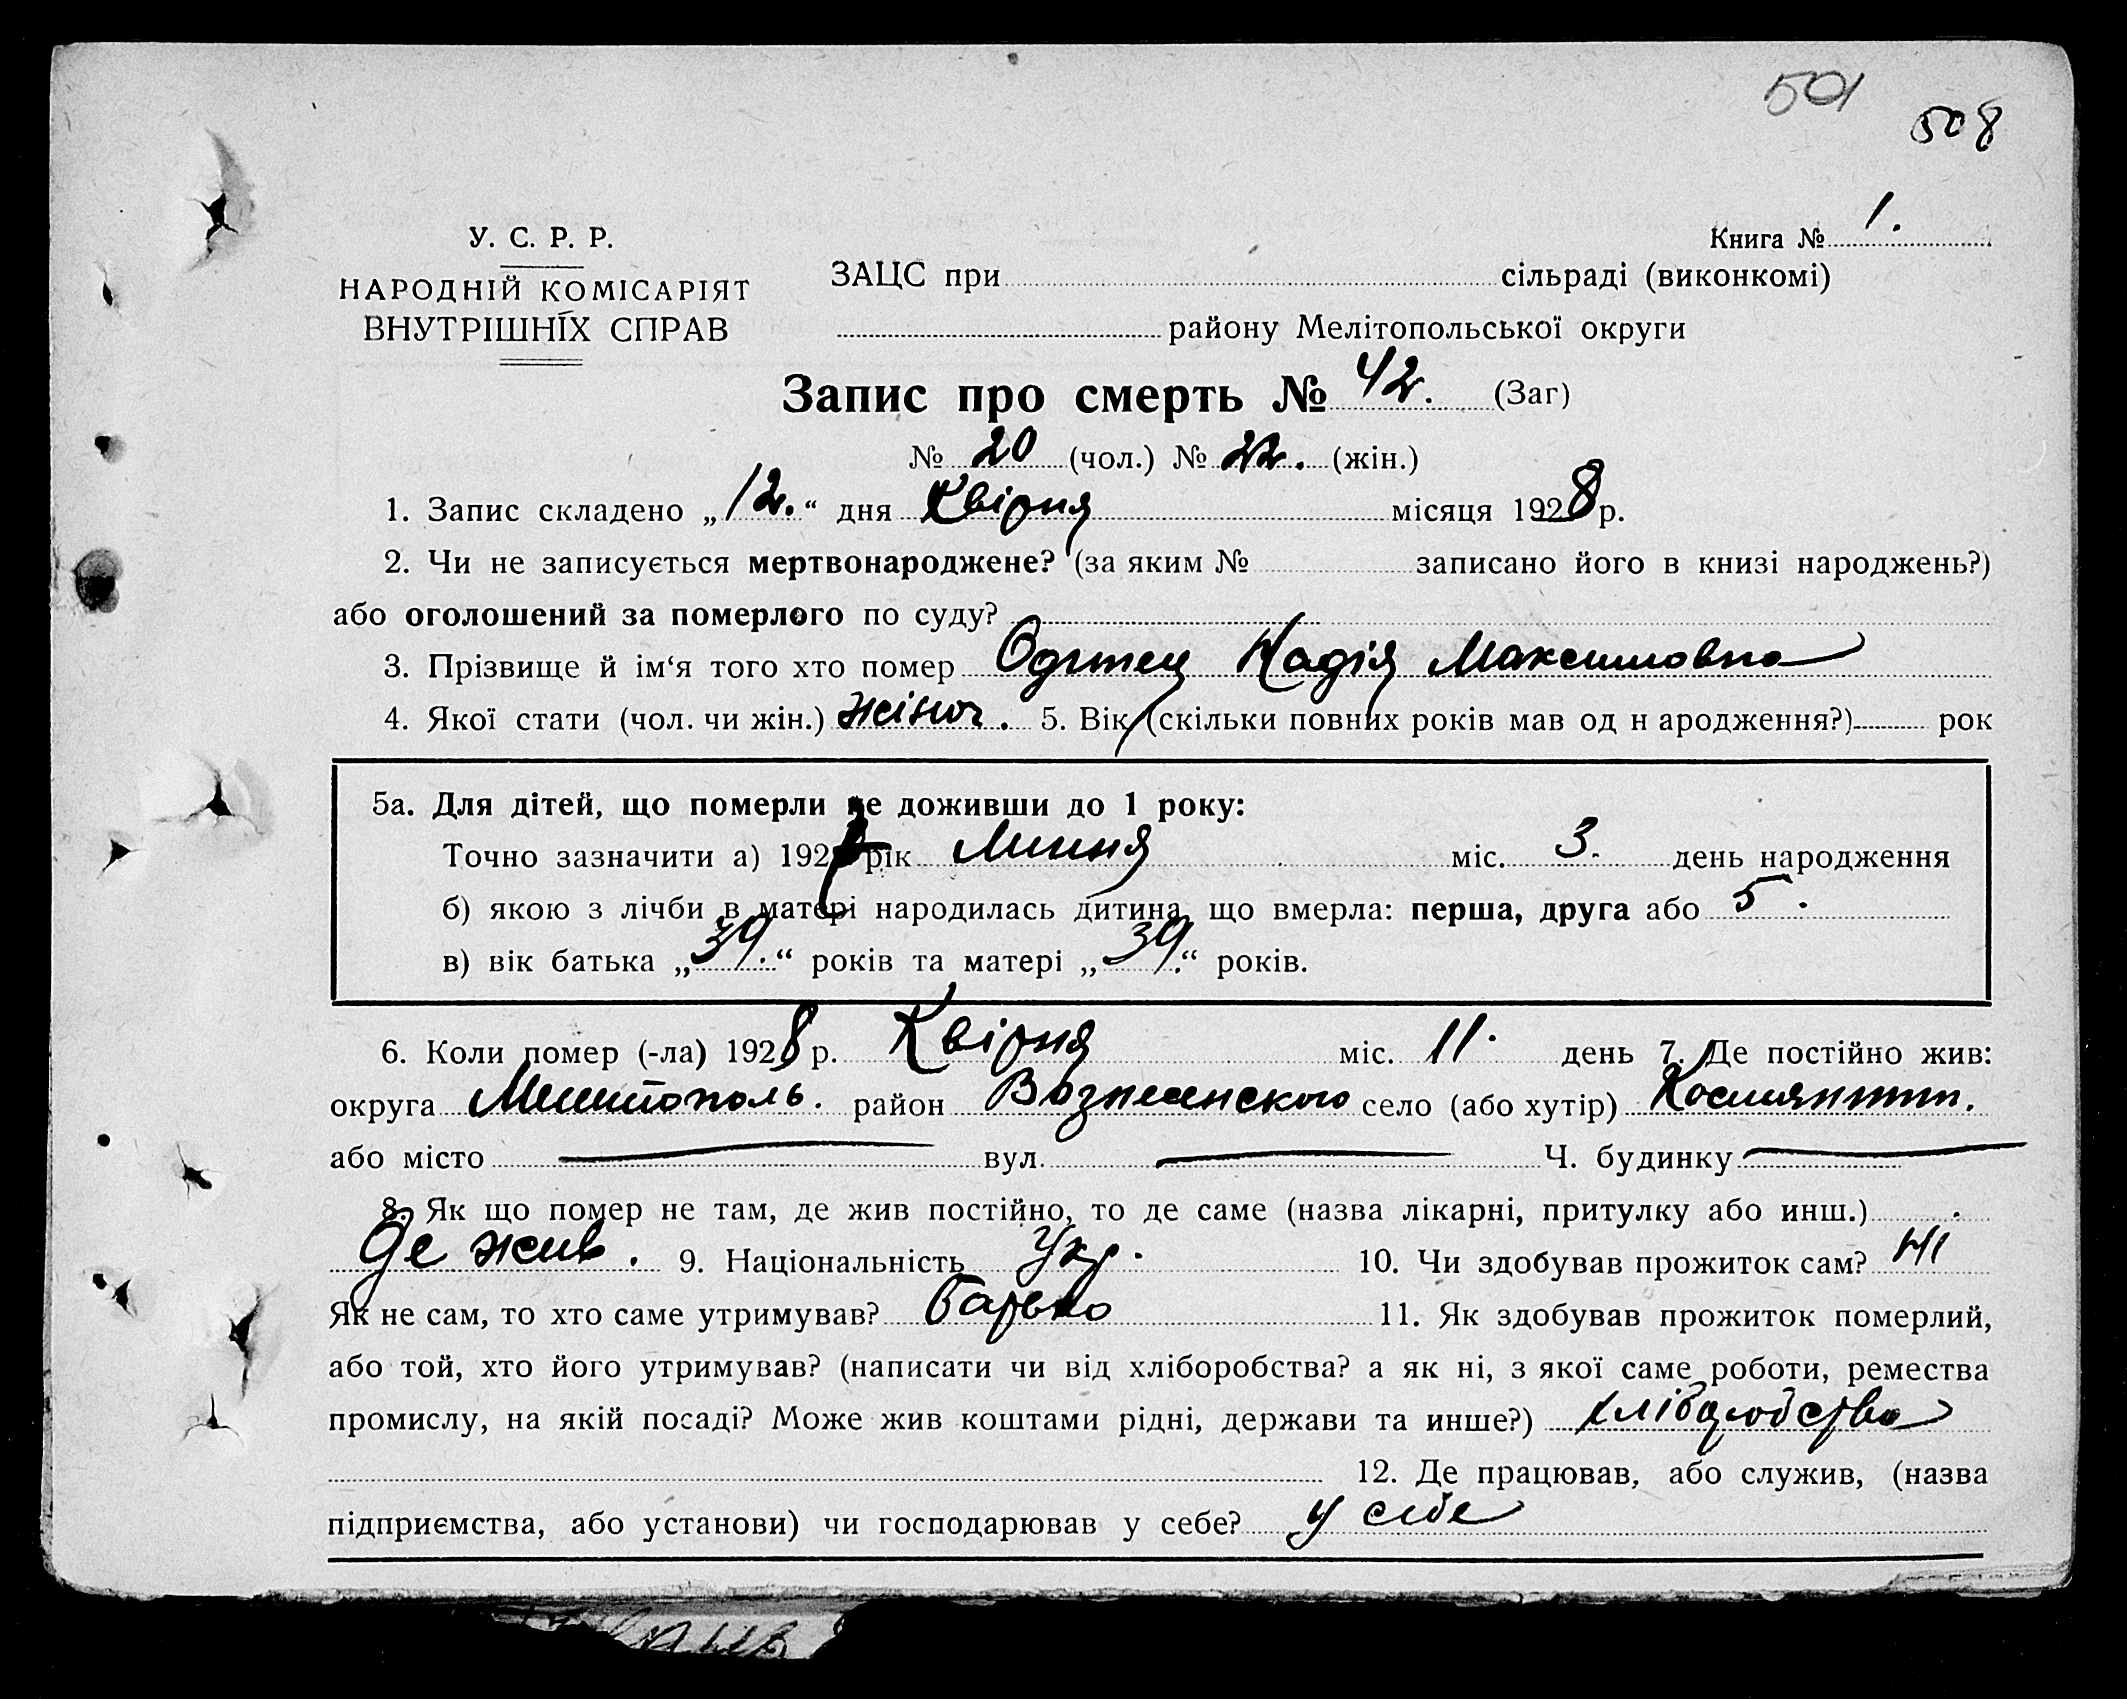 501
508
У. С. Р. Р.
Книга № 1.
НАРОДНІЙ КОМІСАРІЯТ
ЗАЦС при сільраді (виконкомі)
ВНУТРІШНІХ СПРАВ
району Мелітопольської округи
Запис про смерть № 42. (Заг)
№ 20 (чол.) № 22. (жін.)
1. Запис складено „12.“ дня Квіїня місяця 1928 р.
2. Чи не записується мертвонароджене? (за яким № записано його в книзі народжень?)
або оголошений за померлого по суду?
3. Прізвище й ім‘я того хто помер Надія Максимовна
4. Якої стати (чол. чи жін.) жіноч. 5. Вік (скільки повних років мав од н ародження?) рок
5а. Для дітей, що померли не доживши до 1 року:
Точно зазначити а) 1927 рік Липня міс. 3. день народження
б) якою з лічби в матері народилась дитина, що вмерла: перша, друга або 5.
в) вік батька „39.“ років та матері „39.“ років.
6. Коли помер (-ла) 1928 р. Квіїня міс. 11. день 7. Де постійно жив:
округа Мелитополь. район Вознесенского село (або хутір)
або місто — вул. — Ч. будинку —
8. Як що помер не там, де жив постійно, то де саме (назва лікарні, притулку або инш.)
Де жив. 9. Національність Укр. 10. Чи здобував прожиток сам? Ні
Як не сам, то хто саме утримував? Батько 11. Як здобував прожиток померлий,
або той, хто його утримував? (написати чи від хліборобства? а як ні, з якої саме роботи, ремества
промислу, на якій посаді? Може жив коштами рідні, держави та инше?) хліборобство
12. Де працював, або служив, (назва
підприємства, або установи) чи господарював у себе? у себе